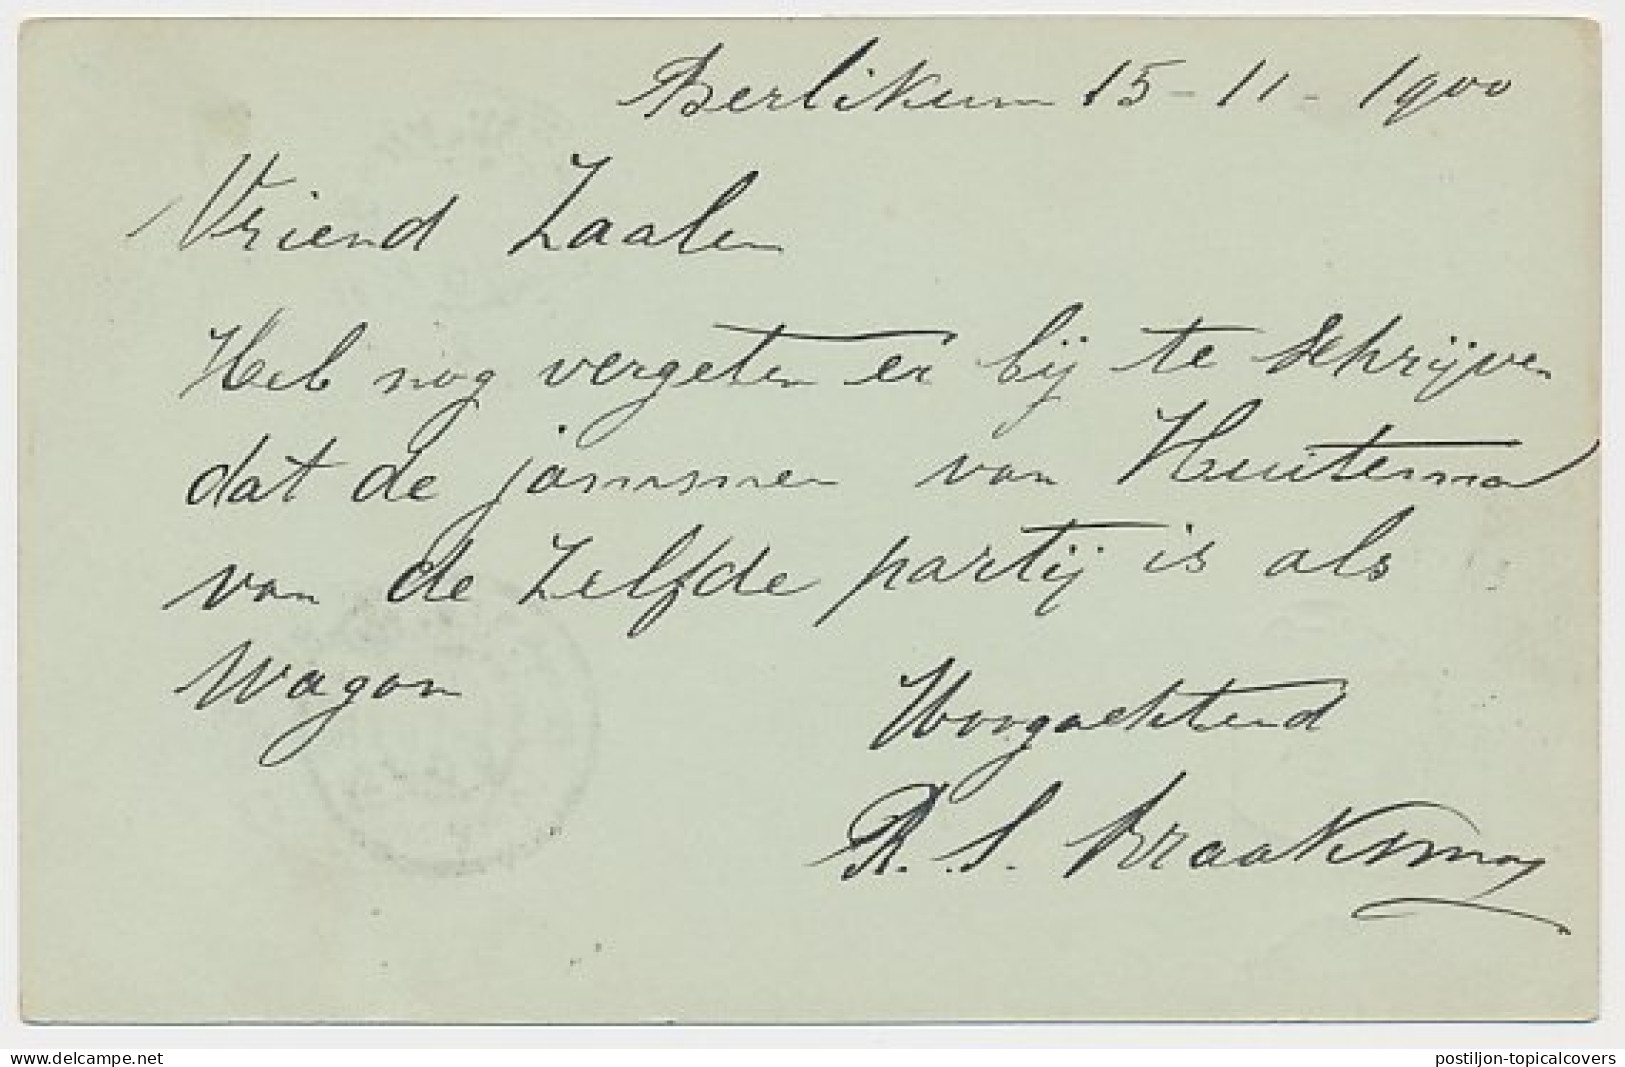 Berlikum 15-11-1900
Vriend Zaalen
Heb nog vergeten er bij te schrijven
dat de jammen van Huitema
van de Zelfde partij is als
Wagon
Hoogachtend
R. S. Braaksma
www.delcampe.net
postiljon-topicalcovers